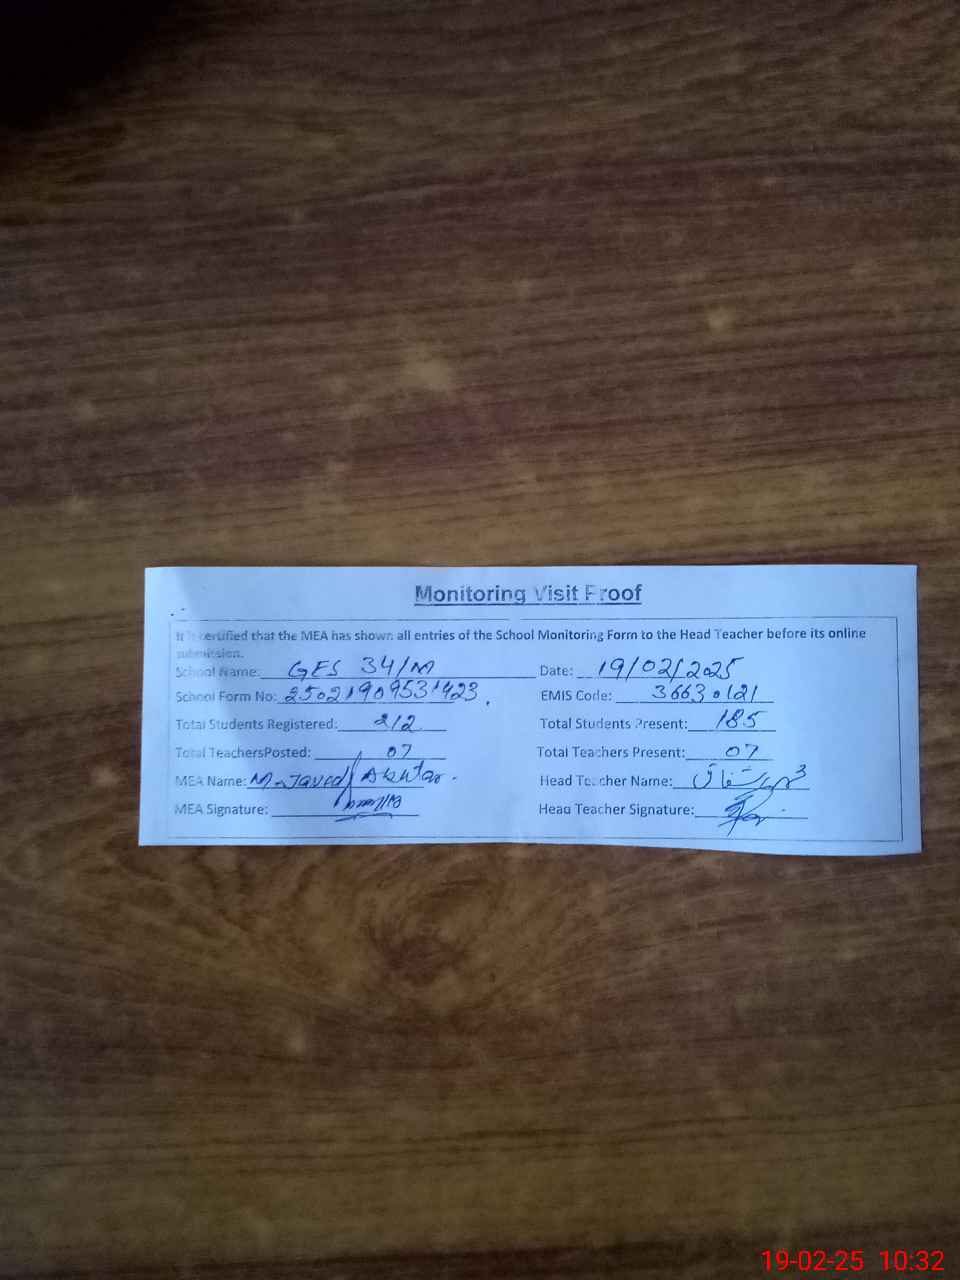 Monitoring Visit Proof
It is certified that the MEA has shown all entries of the School Monitoring Form to the Head Teacher before its online
submission.
School Name: GES 34/M Date: 19/02/2025
School Form No: 25021909531423 EMIS Code: 36630121
Total Students Registered: 212 Total Students Present: 185
Total TeachersPosted: 07 Total Teachers Present: 07
MEA Name: M. Javed Akhtar. Head Teacher Name:
MEA Signature: Head Teacher Signature:
19-02-25 10:32